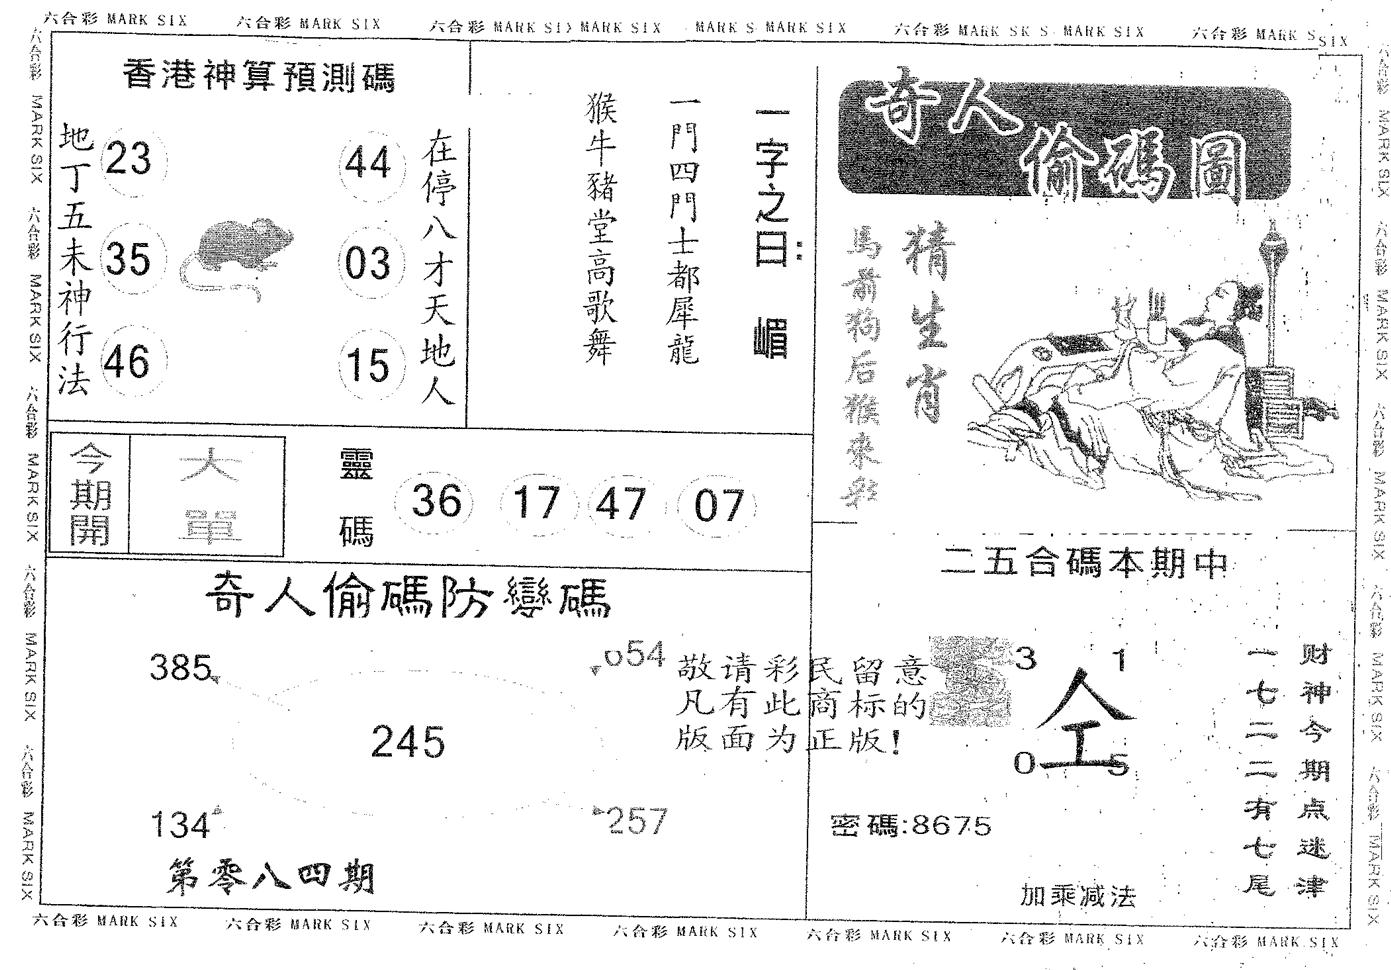 六合彩 MARK SIX
六合彩 MARK SIX
六合彩 MARK SIX MARK SIX
MARK S MARK SIX
六合彩 MARK SK S MARK SIX
六合彩 MARK S SIX
六合彩 MARK SIX
六合彩 MARK SIX
六合彩 MARK SIX
六合彩 MARK SIX
六合彩 MARK SIX
香港神算預測碼
地丁五未神行法
23
35
46
44
03
15
在停八才天地人
一字之曰:嵋
一門四門士都犀龍
猴牛豬堂高歌舞
奇人偷碼圖
猜生肖
馬前狗后猴來彩
今期開
大單
靈碼
36 17 47 07
奇人偷碼防變碼
385
054
245
134
257
第零八四期
敬请彩民留意
凡有此商标的
版面为正版!
二五合碼本期中
3 1
仝
0 5
密碼:8675
加乘减法
财神今期点迷津
一七二二有七尾
六合彩 MARK SIX
六合彩 MARK SIX
六合彩 MARK SIX
六合彩 MARK SIX
六合彩 MARK SIX
六合彩 MARK SIX
六合彩 MARK SIX
六合彩 MARK SIX
六合彩 MARK SIX
六合彩 MARK SIX
六合彩 MARK SIX
六合彩 MARK SIX